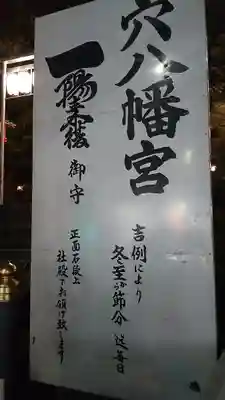 穴八幡宮
吉例により
冬至から節分迄毎日
一陽来復
御守
正面石段上
社殿でお頒け致します